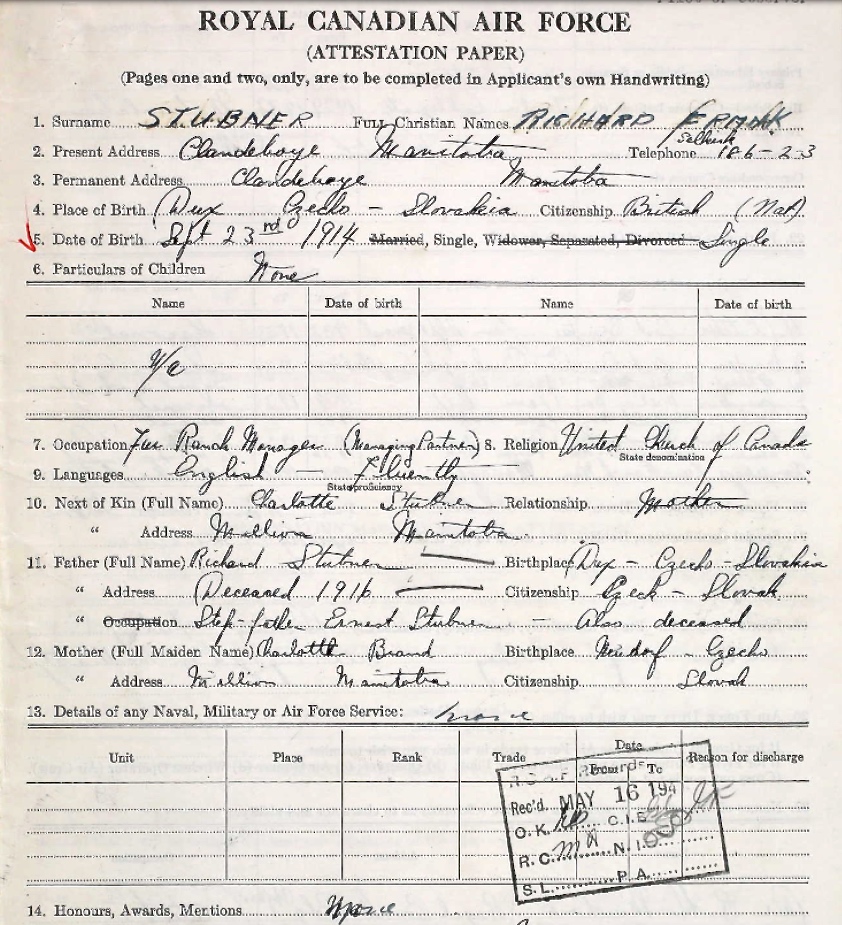 ROYAL CANADIAN AIR FORCE
(ATTESTATION PAPER)
(Pages one and two, only, are to be completed in Applicant's own Handwriting)
1. Surname STUBNER FULL Christian Names RICHARD
2. Present Address Clandeboye Manitoba Telephone Selkirk 186-2-3
3. Permanent Address Clandeboye Manitoba
4. Place of Birth Dux Czecho - Slovakia Citizenship British (Nat)
5. Date of Birth Sept 23rd 1914 Married, Single, Widower, Separated, Divorced Single
6. Particulars of Children None
Name Date of birth Name Date of birth
N/A
7. Occupation Fur Ranch Manager (Managing Partner) 8. Religion United Church of Canada
State denomination
9. Languages English - Fluently
State proficiency
10. Next of Kin (Full Name) Charlotte Stubner Relationship Mother
" Address Manitoba
11. Father (Full Name) Richard Stubner Birthplace Dux - Czecho - Slovakia
" Address Deceased 1916 Citizenship Czech - Slovak
" Occupation Step-father Ernest Stubner - Also deceased
12. Mother (Full Maiden Name) Charlotte Brand Birthplace Neudorf - Czecho
" Address Manitoba Citizenship Slovak
13. Details of any Naval, Military or Air Force Service: None
Unit Place Rank Trade Date Reason for discharge
From To
R.C.A.F. Records
Rec'd. MAY 16 194
O.K. C.I.E.
R.C. N.I.
S.L. P.A.
14. Honours, Awards, Mentions None